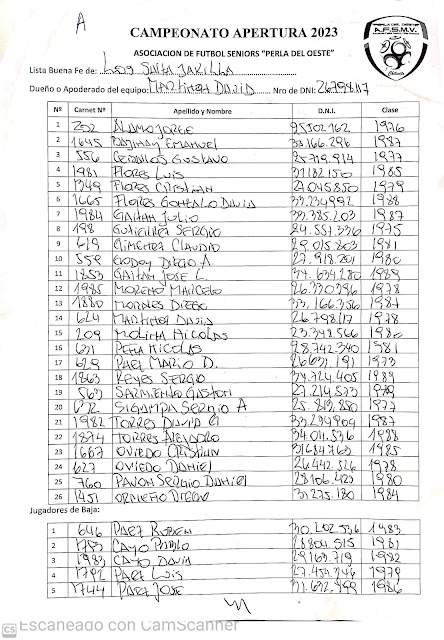 A
CAMPEONATO APERTURA 2023
ASOCIACION DE FUTBOL SENIORS "PERLA DEL OESTE"
PERLA DEL OESTE
A.F.S.M.V.
Chilecito
Lista Buena Fe de: LOS SANTA JARILLA
Dueño o Apoderado del equipo: MARTINEZ DAVID Nro de DNI: 26798117
Nº Carnet Nº Apellido y Nombre D.N.I. Clase
1 232 ALAMO JORGE 25502162 1976
2 1645 EMANUEL 33.166.296 1987
3 556 CEBALLOS GUSTAVO 25.719.914 1977
4 1981 FLORES LUIS 31.182.150 1985
5 1349 FLORES CRISTIAN 27.045.850 1979
6 1665 FLORES GONZALO DAVID 33.234992 1988
7 1984 GAITAN JULIO 33.385.203 1987
8 198 GUTIERREZ SERGIO 24.557.336 1975
9 619 GIMENEZ CLAUDIO 29.015.803 1981
10 559 GODOY DIEGO A. 27.918.201 1980
11 1853 GAITAN JOSE L. 34.634.280 1989
12 1985 MORENO MARCELO 26.330396 1978
13 1880 MORALES DIEGO 33.166.356 1987
14 624 MARTINEZ DAVID 26.798117 1978
15 209 MOLINA NICOLAS 23.348.566 1980
16 631 PEÑA NICOLAS 28.742.340 1981
17 629 PAEZ MARIO D. 26631.191 1973
18 1863 REYES SERGIO 34.724.405 1989
19 563 SARMIENTO GASTON 27.214.573 1979
20 632 SIGAMPA SERGIO A 25.813.850 1977
21 1982 TORRES DAVID G 33.234909 1987
22 1874 TORRES ALEJADRO 34.011.536 1988
23 1667 OVIEDO CRISTIAN 31684763 1985
24 627 OVIEDO DANIEL 26.442.526 1978
25 760 PAVON SERGIO DANIEL 28106.423 1980
26 1451 ORMEÑO DIEGO 31275.180 1984
Jugadores de Baja:
1 646 PAEZ RUBEN 30.202.536 1983
2 1753 CAYO PABLO 28804.515 1981
3 1983 CAYO DAVID 29163.719 1982
4 1792 PAEZ LUIS 27.454.346 1979
5 1744 PAEZ JOSE 31.632.749 1986
CS Escaneado con CamScanner